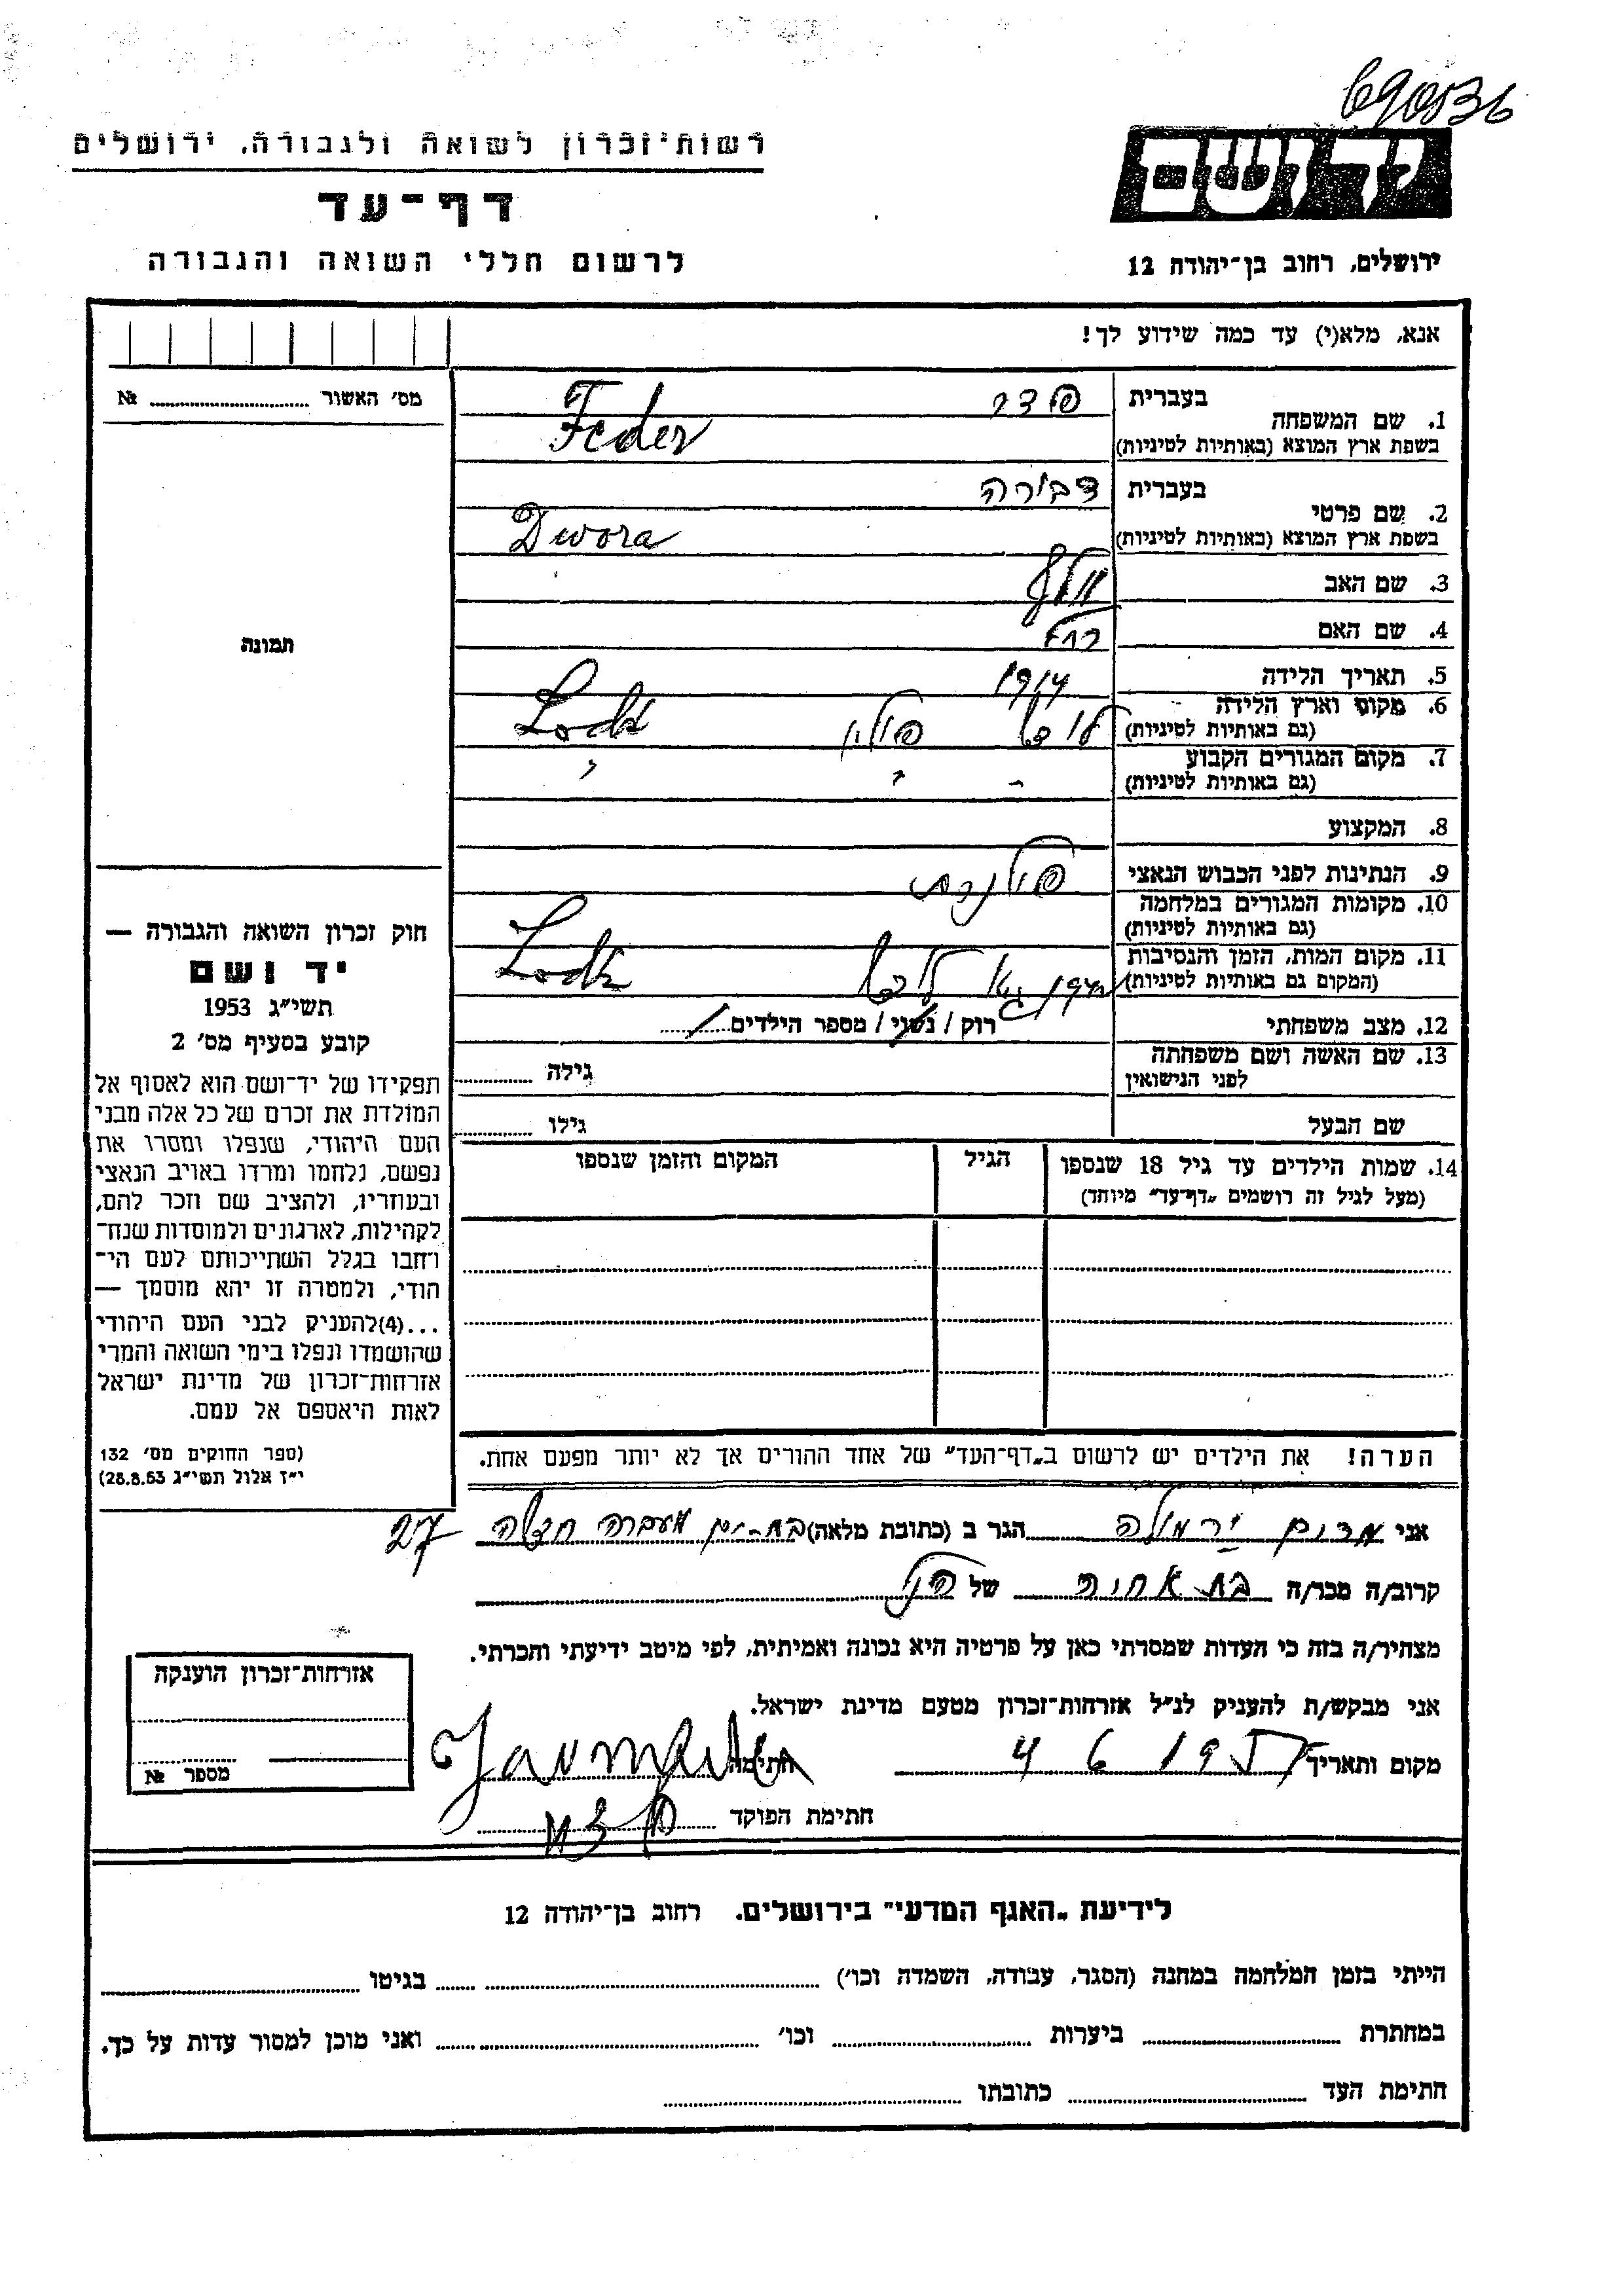 690536
רשות־זכרון לשואה ולגבורה, ירושלים
ידושם
דף־עד
לרשום חללי השואה והגבורה
ירושלים, רחוב בן־יהודה 12
אנא, מלא(י) עד כמה שידוע לך!
מס׳ האשור № 
1. שם המשפחה
בעברית פדר
בשפת ארץ המוצא (באותיות לטיניות) Feder
2. שם פרטי
בעברית דבורה
בשפת ארץ המוצא (באותיות לטיניות) Dwora
3. שם האב
4. שם האם רחל
תמונה
5. תאריך הלידה 1914
6. מקום וארץ הלידה
(גם באותיות לטיניות) לודז פולין Lodz
7. מקום המגורים הקבוע
(גם באותיות לטיניות) " " "
8. המקצוע
9. הנתינות לפני הכבוש הנאצי פולנית
10. מקומות המגורים במלחמה
(גם באותיות לטיניות)
11. מקום המות, הזמן והנסיבות
(המקום גם באותיות לטיניות) לודז Lodz
12. מצב משפחתי רוק / נשוי / מספר הילדים
13. שם האשה ושם משפחתה
לפני הנישואין גילה
שם הבעל גילו
14. שמות הילדים עד גיל 18 שנספו
(מעל לגיל זה רושמים „דף־עד” מיוחד)
הגיל
המקום והזמן שנספו
חוק זכרון השואה והגבורה —
יד ושם
תשי״ג 1953
קובע בסעיף מס׳ 2
תפקידו של יד־ושם הוא לאסוף אל
המולדת את זכרם של כל אלה מבני
העם היהודי, שנפלו ומסרו את
נפשם, נלחמו ומרדו באויב הנאצי
ובעוזריו, ולהציב שם וזכר להם,
לקהילות, לארגונים ולמוסדות שנח־
רחבו בגלל השתייכותם לעם הי־
הודי, ולמטרה זו יהא מוסמך —
...(4)להעניק לבני העם היהודי
שהושמדו ונפלו בימי השואה והמרי
אזרחות־זכרון של מדינת ישראל
לאות היאספם אל עמם.
(ספר החוקים מס׳ 132
י״ז אלול תשי״ג 28.8.53)
הערה! את הילדים יש לרשום ב„דף־העד” של אחד ההורים אך לא יותר מפעם אחת.
אני מרים ירמולה הגר ב (כתובת מלאה) בת-ים מעברה חדשה 27
קרוב/ה מכר/ה בת אחיה של הנ״ל
מצהיר/ה בזה כי העדות שמסרתי כאן על פרטיה היא נכונה ואמיתית, לפי מיטב ידיעתי והכרתי.
אני מבקש/ת להעניק לנ״ל אזרחות־זכרון מטעם מדינת ישראל.
מקום ותאריך 4 6 1957 חתימה
חתימת הפוקד
אזרחות־זכרון הוענקה
מספר №
לידיעת „האגף המדעי” בירושלים. רחוב בן־יהודה 12
הייתי בזמן המלחמה במחנה (הסגר, עבודה, השמדה וכו׳) בגיטו
במחתרת ביערות וכו׳ ואני מוכן למסור עדות על כך.
חתימת העד כתובתו